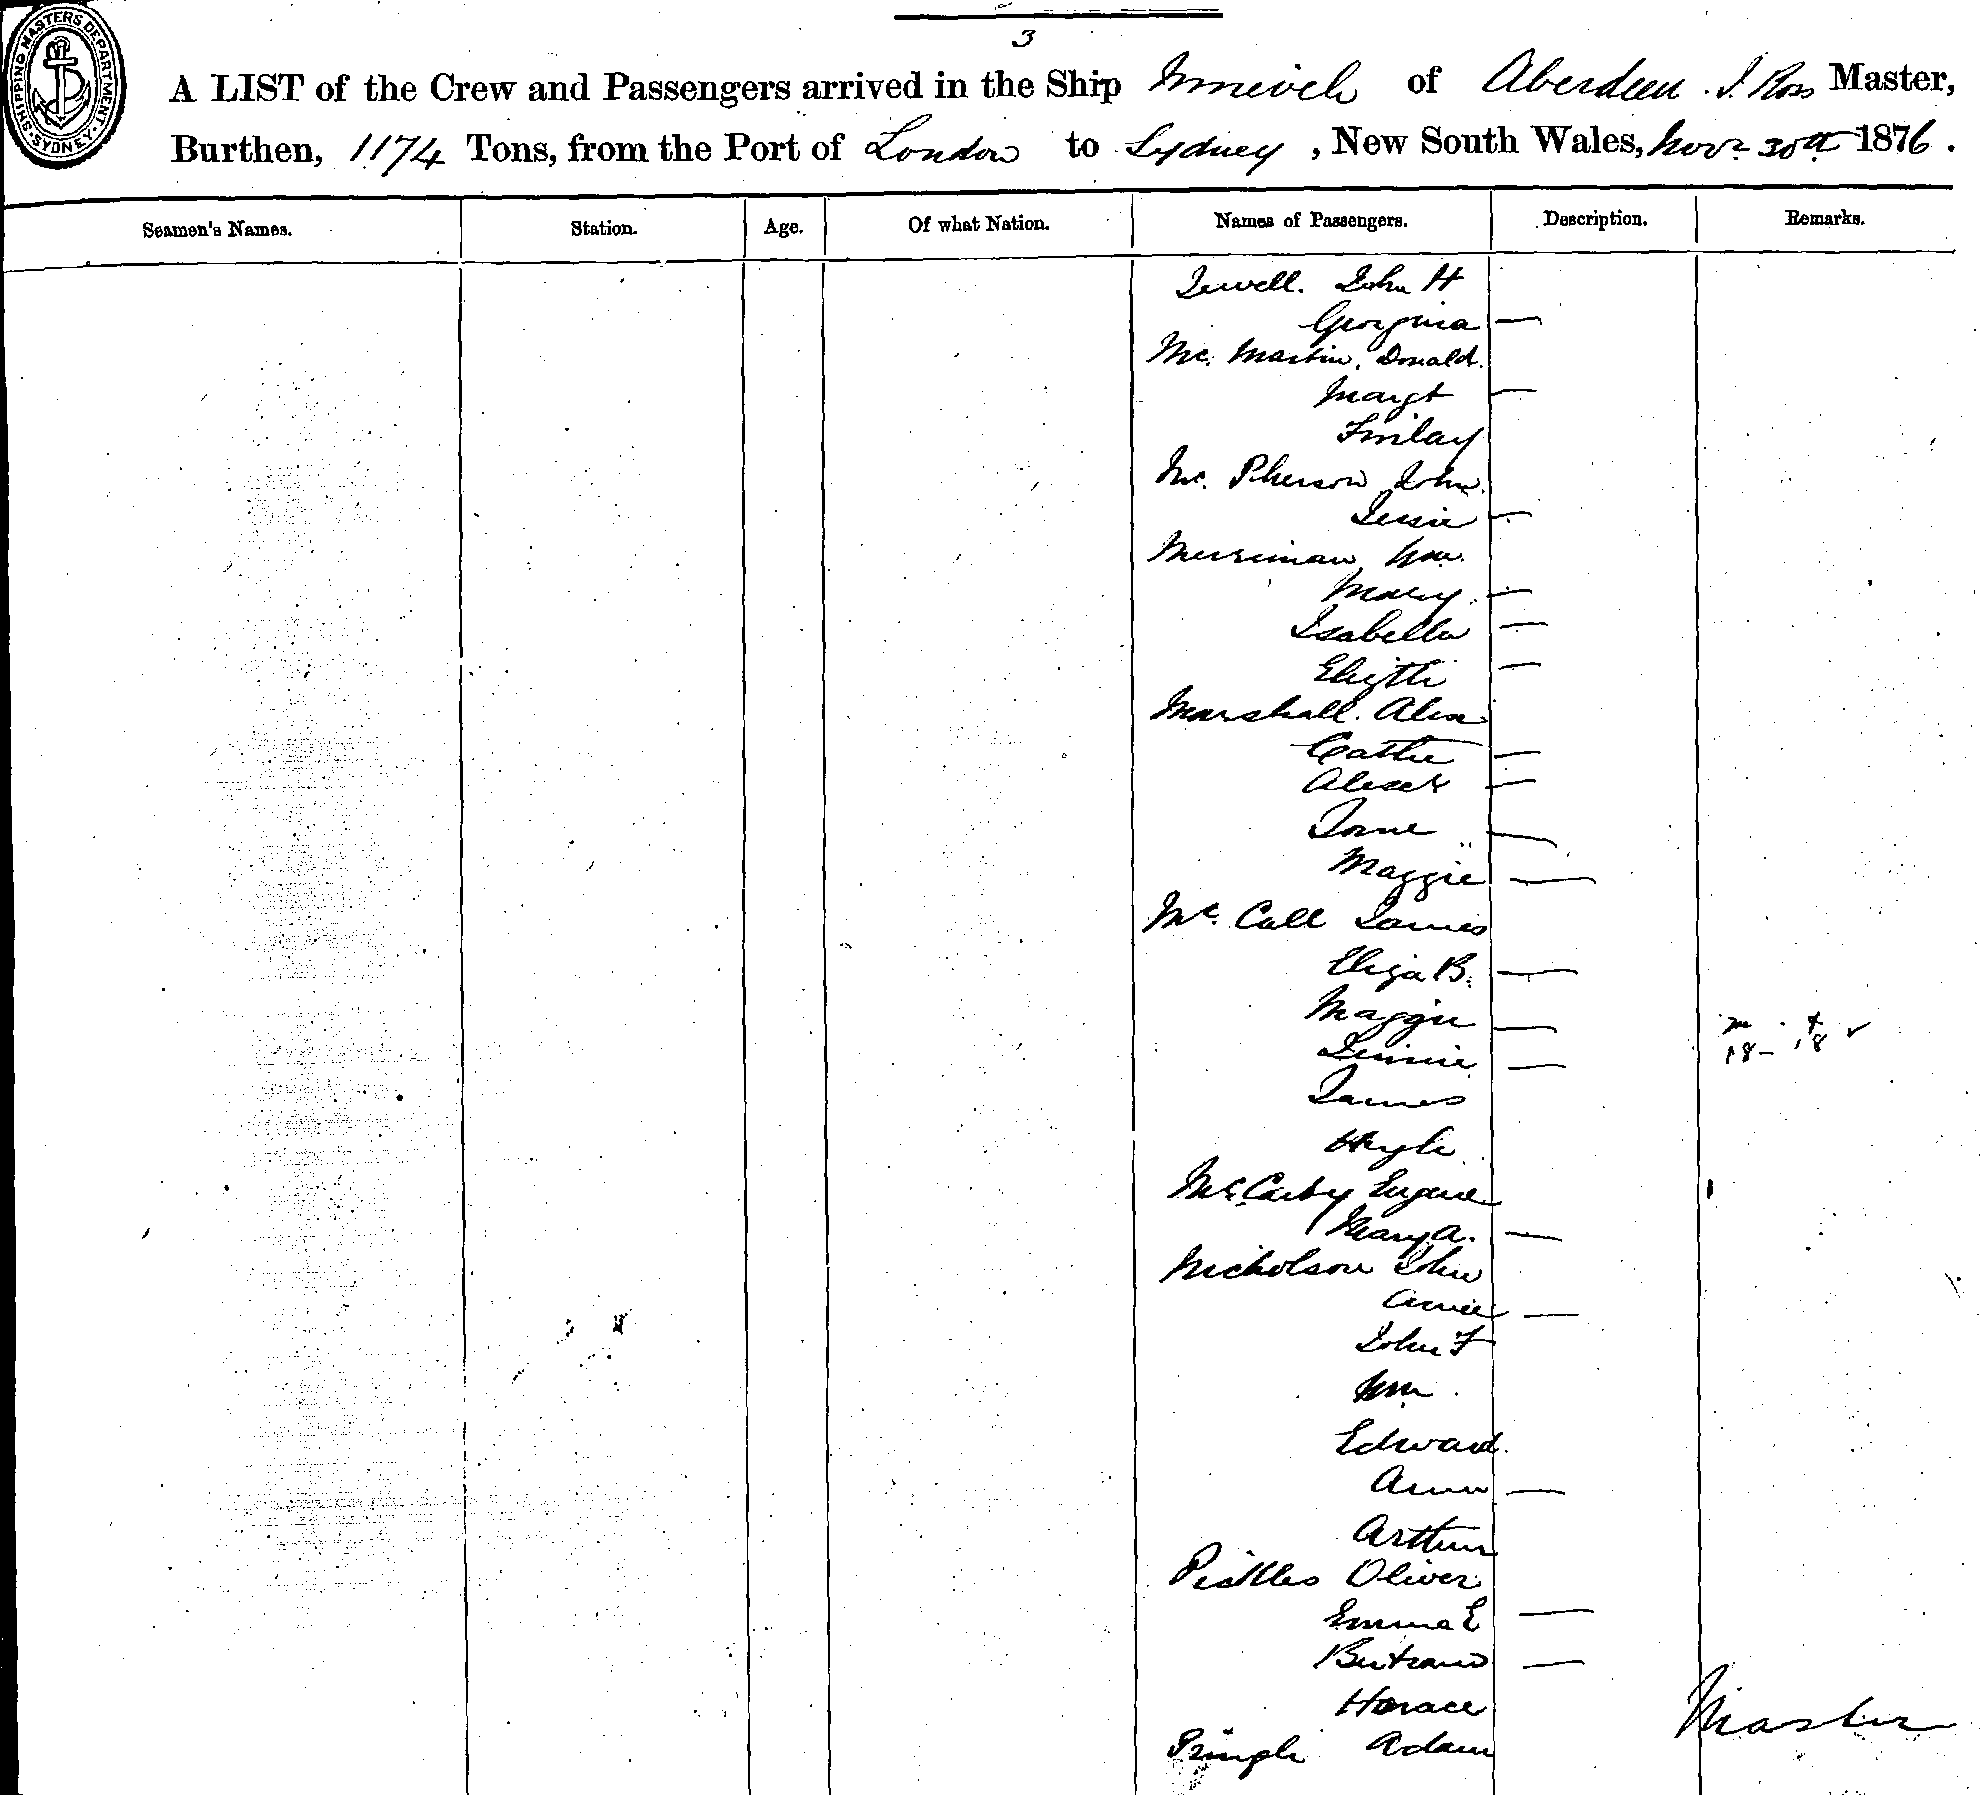 3
SHIPPING MASTERS DEPARTMENT. SYDNEY.
A LIST of the Crew and Passengers arrived in the Ship Nineveh of Aberdeen. J. Ross Master,
Burthen, 1174 Tons, from the Port of London to Sydney, New South Wales, Novr 30th 1876.
Seamen's Names. Station. Age. Of what Nation. Names of Passengers. Description. Remarks.
Jewell. John H
Georgina —
Mc. Martin. Donald.
Margt —
Finlay
Mc. Pherson John.
Jessie —
Merriman Wm.
Mary. —
Isabella —
Elizth —
Marshall. Alex.
Cathe —
Alexr —
Jane —
Maggie —
Mc. Call James
Eliza B. —
Maggie —
Jennie —
18 - 18
James
Hugh
McCarty Eugene
Mary A. —
Nicholson John
Annie —
John F
Wm.
Edward.
Ann —
Arthur
Pickles Oliver
Emma E —
Bertram —
Horace
Master
Pringle Adam